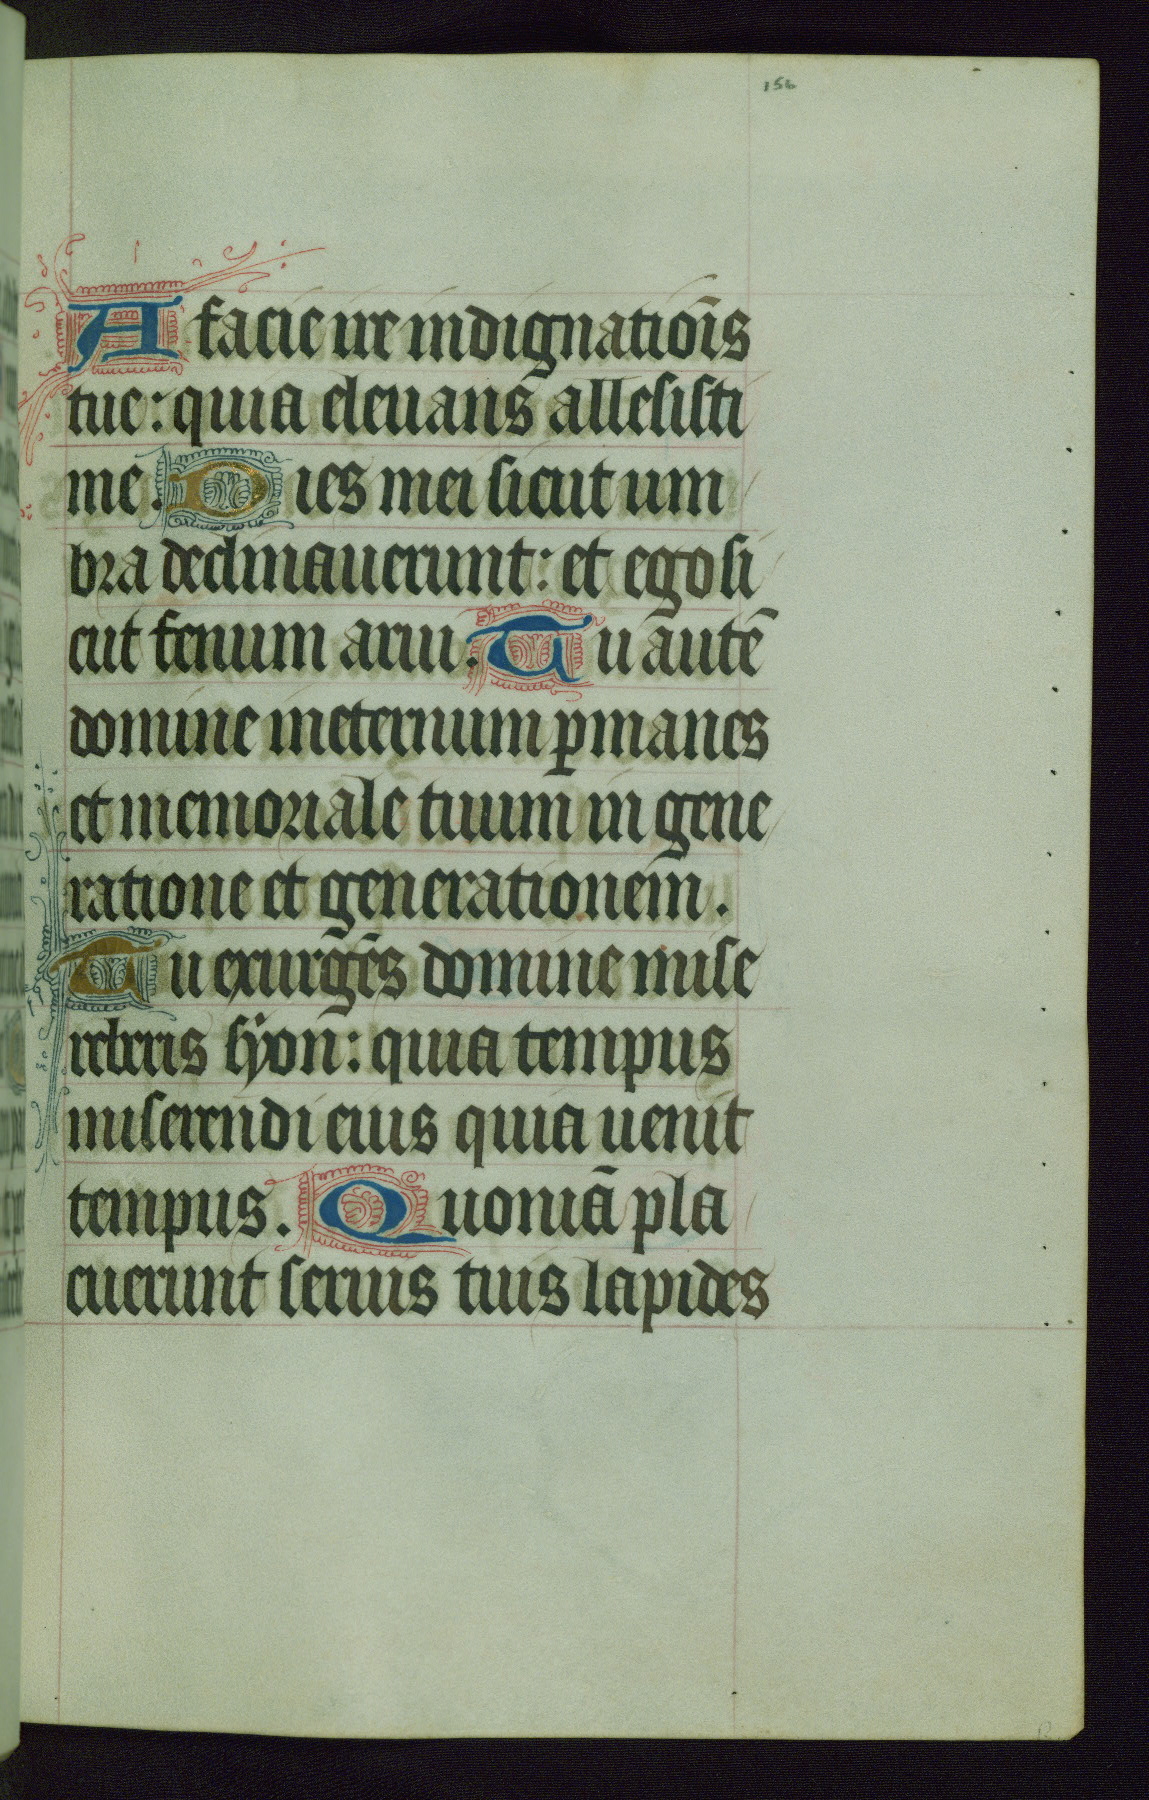 156
A facie ire indignatiōis
tue: quia eleuans allesisti
me. Dies mei sicut um
bra declinauerunt: et ego si
cut fenum arui. Tu autē
domine ineternum ꝑmanes
et memoriale tuum in gene
ratione et generationem.
Tu exurgēs domine mise
reberis syon: quia tempus
miserendi eius quia uenit
tempus. Quoniā pla
cuerunt seruis tuis lapides